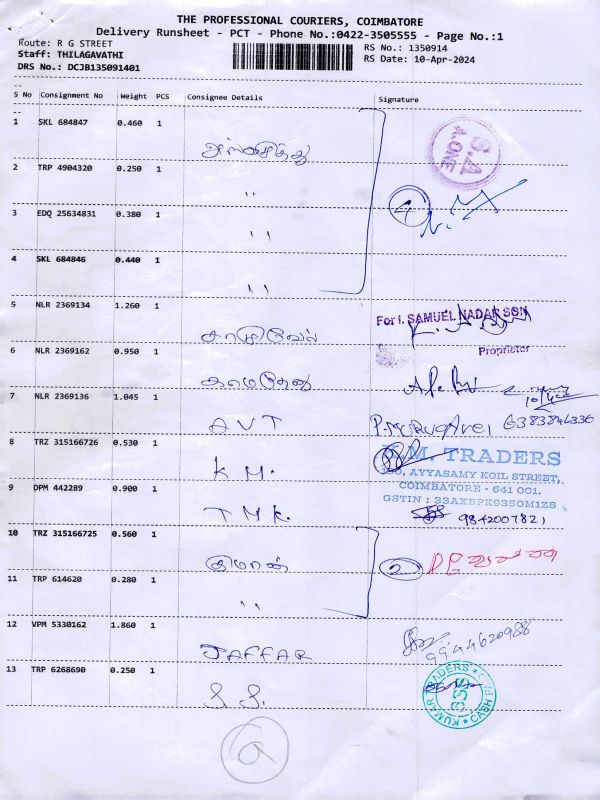 THE PROFESSIONAL COURIERS, COIMBATORE
Delivery Runsheet - PCT - Phone No.:0422-3505555 - Page No.:1
Route: R G STREET
RS No.: 1350914
Staff: THILAGAVATHI
RS Date: 10-Apr-2024
DRS No.: DCJB135091401
S No Consignment No Weight PCS Consignee Details Signature
1 SKL 684847 0.460 1
S.A
A.ONE
2 TRP 4904320 0.250 1
"
4
3 EDQ 25634831 0.380 1
"
4 SKL 684846 0.440 1
"
5 NLR 2369134 1.260 1
For I. SAMUEL NADAR SON
Proprietor
6 NLR 2369162 0.950 1
காமதேனு
7 NLR 2369136 1.045 1
AVT
6383846336
8 TRZ 315166726 0.530 1
K.M.
K.M. TRADERS
AYYASAMY KOIL STREET,
COIMBATORE - 641 001.
GSTIN : 33AXBPK9350M1Z8
9 DPM 442289 0.900 1
TMK.
9842007821
10 TRZ 315166725 0.560 1
2
11 TRP 614620 0.280 1
"
12 VPM 5330162 1.860 1
JAFFAR
9944620988
13 TRP 6268690 0.250 1
S.S.
KUMAR TRADERS
CASH
636
a